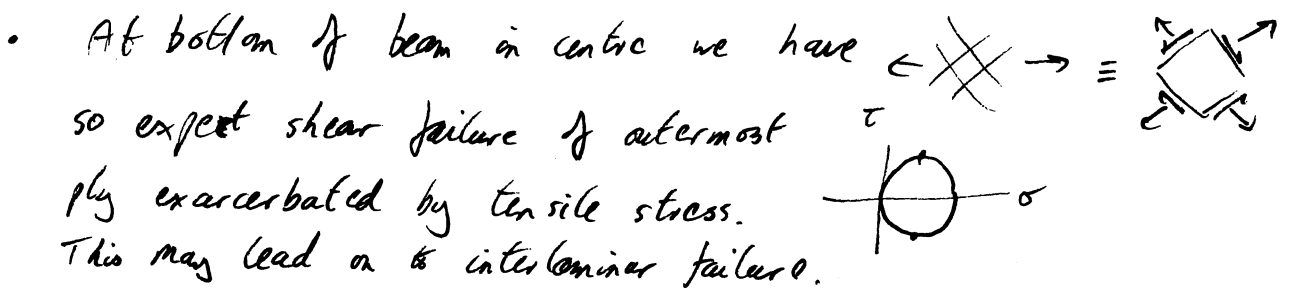 • At bottom of beam in centre we have ← → ≡
so expect shear failure of outermost τ
ply exarcerbated by tensile stress. σ
This may lead on to interlaminar failure.